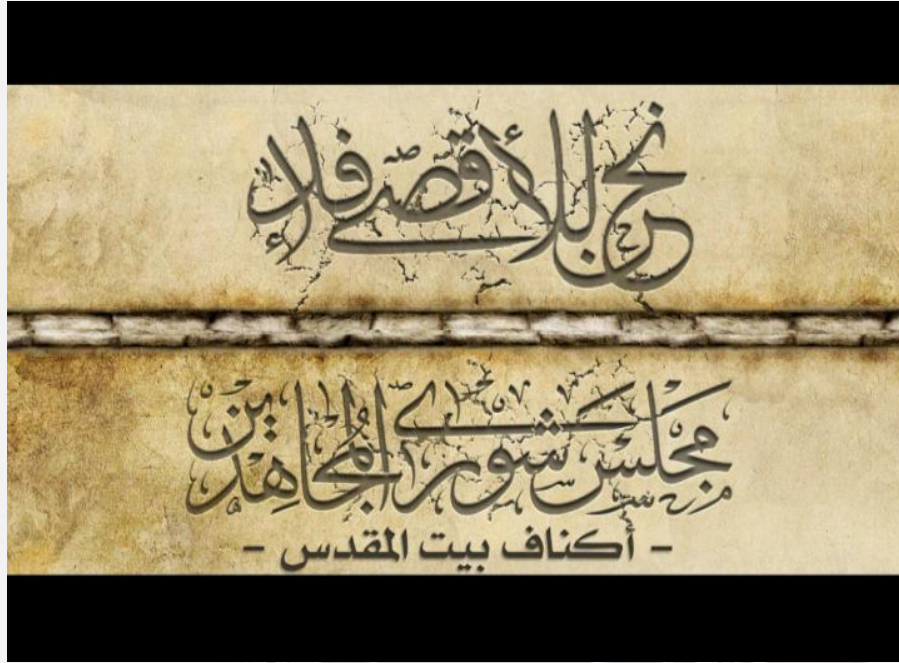 نحن للأقصى فداء
مجلس شورى المجاهدين
- أكناف بيت المقدس -